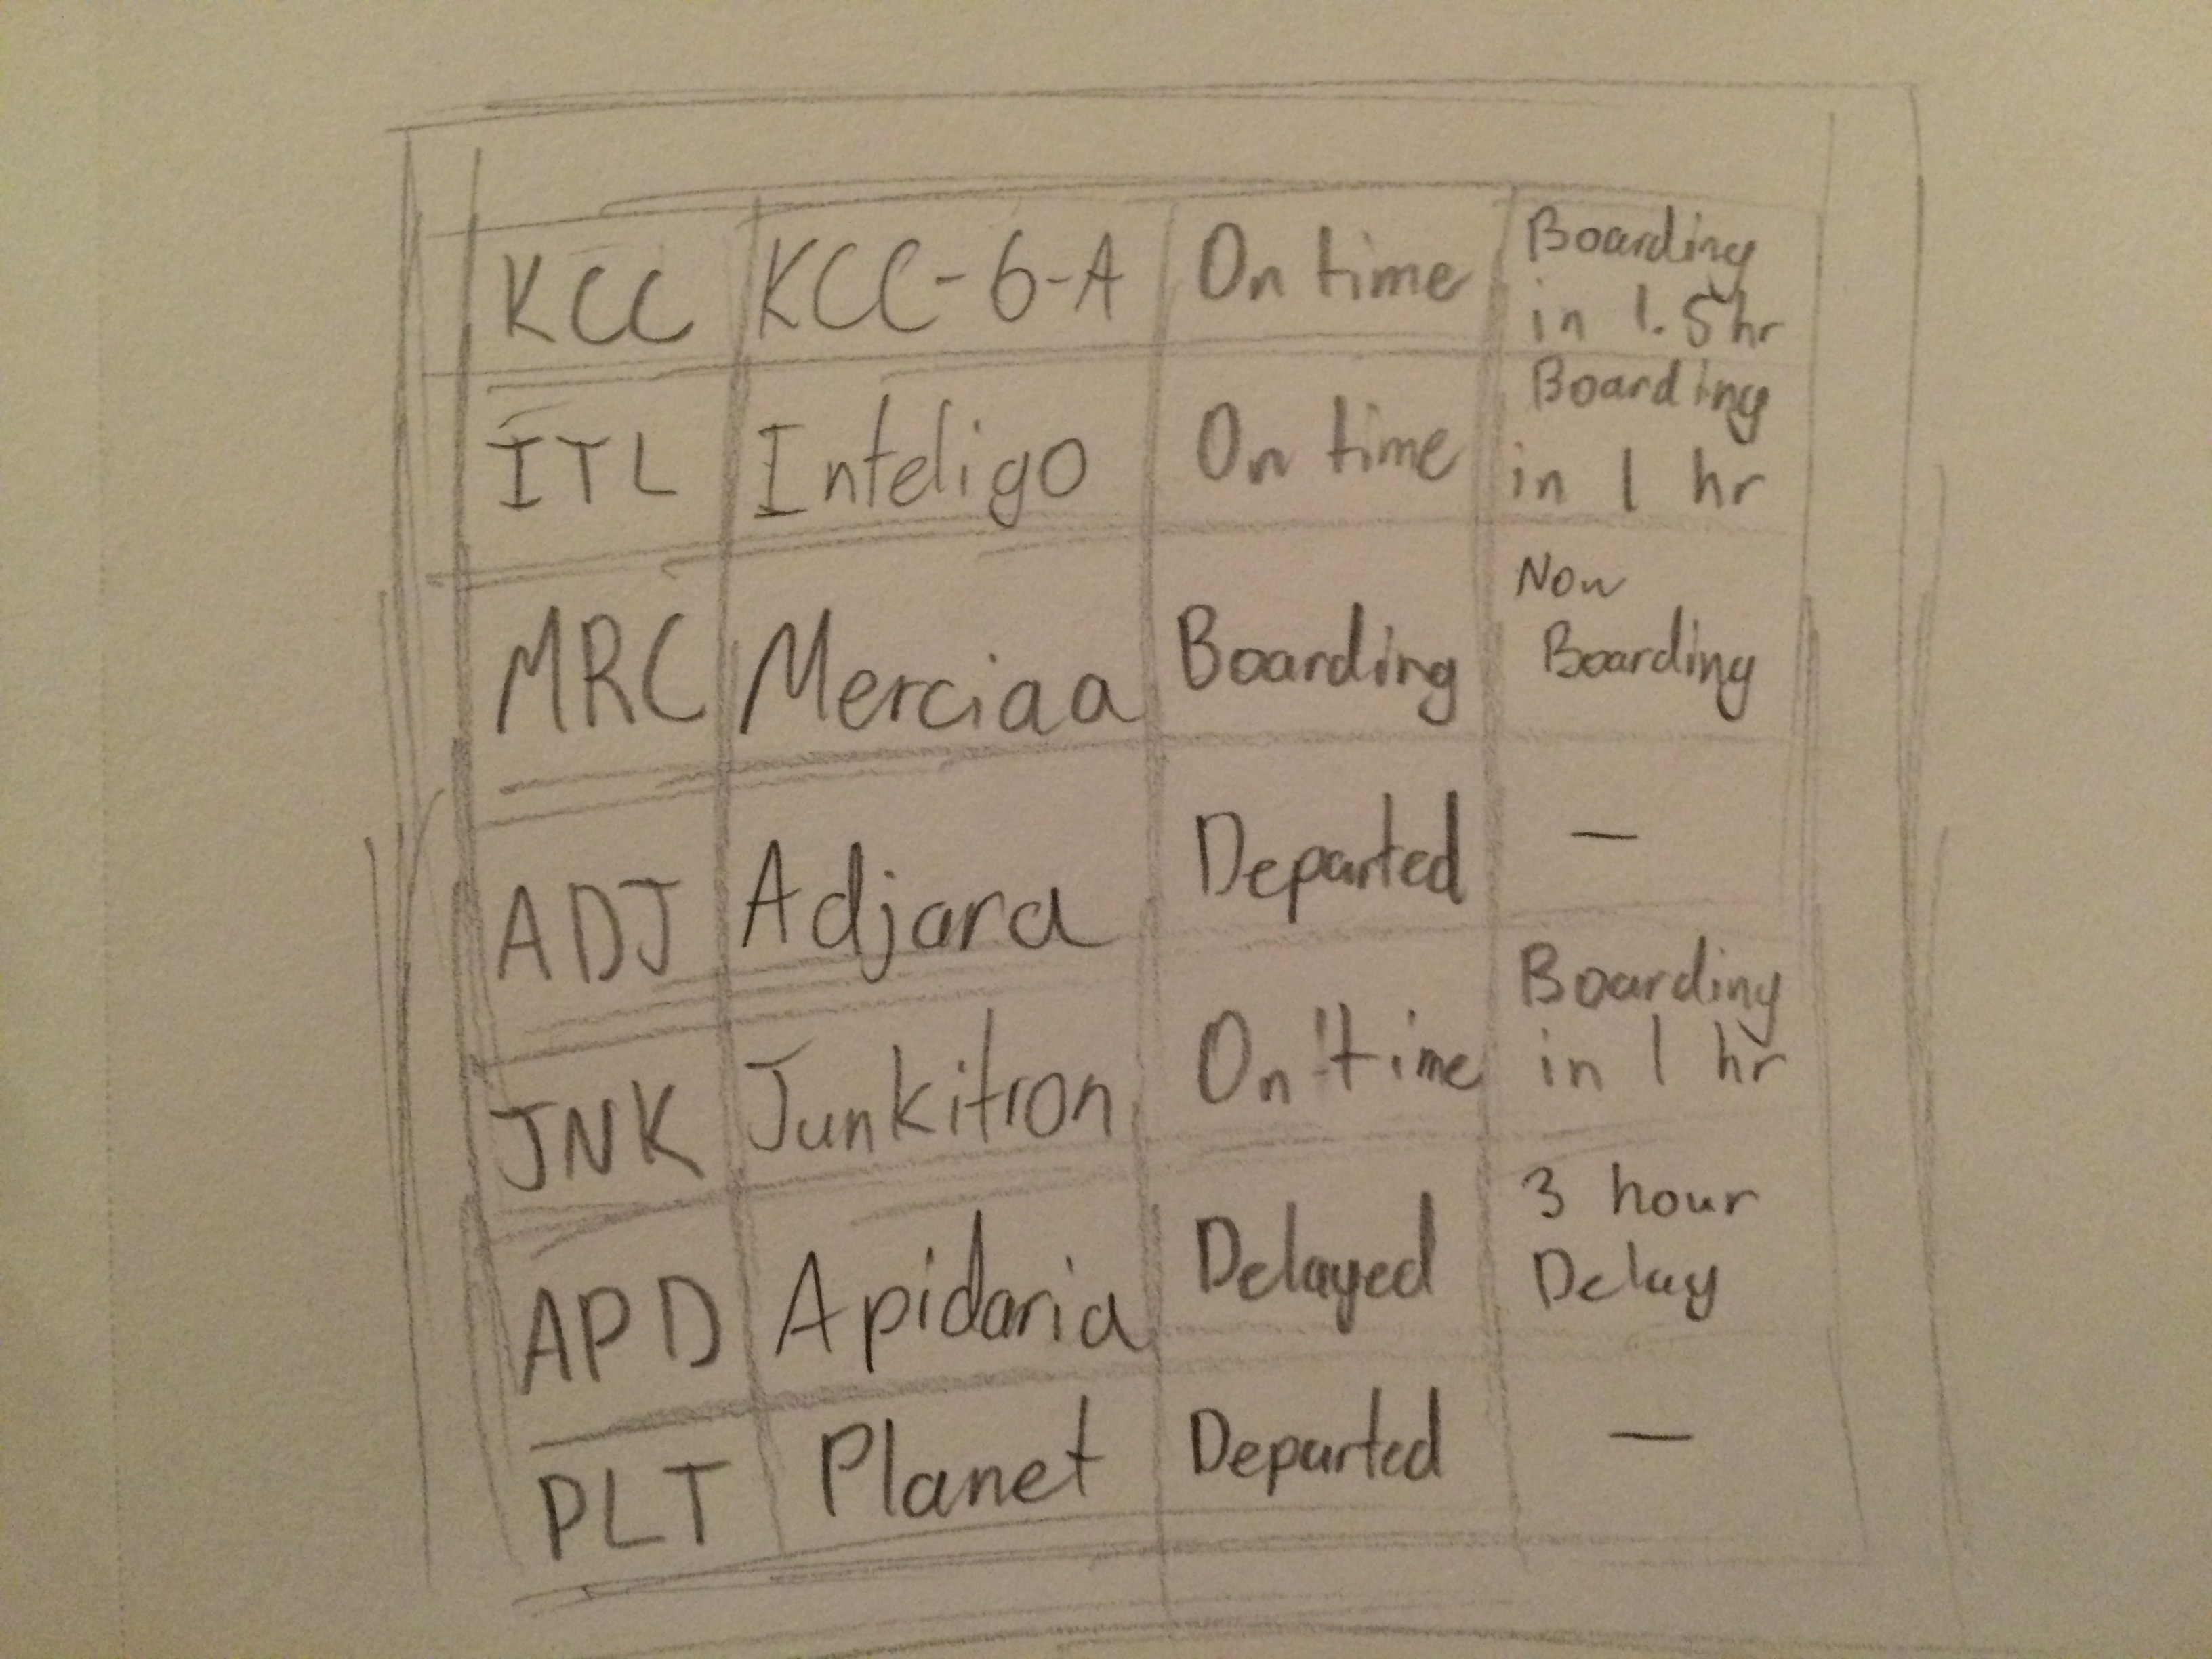 KCC KCC-6-A On time Boarding
in 1.5hr
ITL Inteligo On time Boarding
in 1 hr
MRC Merciaa Boarding Now
Boarding
ADJ Adjara Departed —
JNK Junkitron On time Boarding
in 1 hr
APD Apidaria Delayed 3 hour
Delay
PLT Planet Departed —